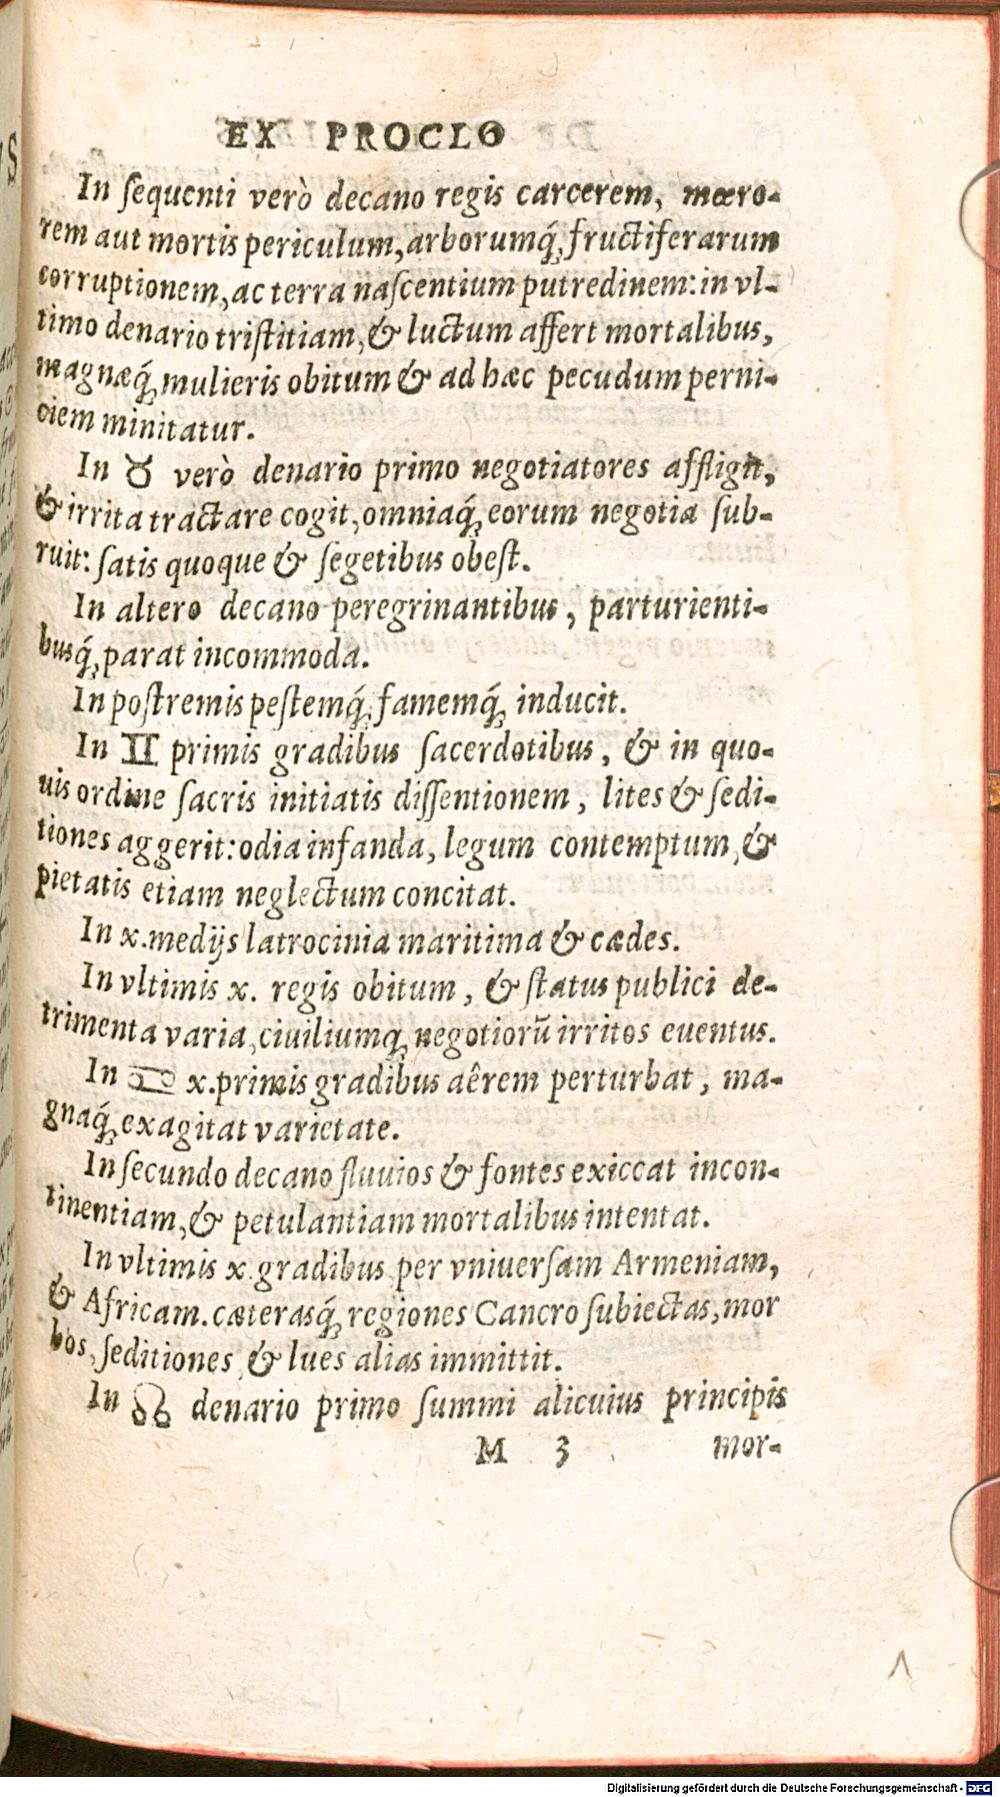 EX PROCLO
In ſequenti verò decano regis carcerem, mœro-
rem aut mortis periculum, arborumq́; fructiferarum
corruptionem, ac terra naſcentium putredinem: in vl-
timo denario triſtitiam, & luctum affert mortalibus,
magnæq́; mulieris obitum & ad hæc pecudum perni-
ciem minitatur.
In ♉ verò denario primo negotiatores affligit,
& irrita tractare cogit, omniaq́; eorum negotia ſub-
ruit: ſatis quoque & ſegetibus obeſt.
In altero decano peregrinantibus, parturienti-
busq́; parat incommoda.
In poſtremis peſtemq́; famemq́; inducit.
In ♊ primis gradibus ſacerdotibus, & in quo-
uis ordine ſacris initiatis diſſentionem, lites & ſedi-
tiones aggerit: odia infanda, legum contemptum, &
pietatis etiam neglectum concitat.
In x. medijs latrocinia maritima & cædes.
In vltimis x. regis obitum, & ſtatus publici de-
trimenta varia, ciuiliumq; negotiorū irritos euentus.
In ♋ x. primis gradibus aêrem perturbat, ma-
gnaq́; exagitat varietate.
In ſecundo decano fluuios & fontes exiccat incon-
tinentiam, & petulantiam mortalibus intentat.
In vltimis x. gradibus per vniuerſam Armeniam,
& Africam. cæterasq́; regiones Cancro ſubiectas, mor
bos, ſeditiones & lues alias immittit.
In ♌ denario primo ſummi alicuius principis
M 3 mor-
Digitalisierung gefördert durch die Deutsche Forschungsgemeinschaft - DFG